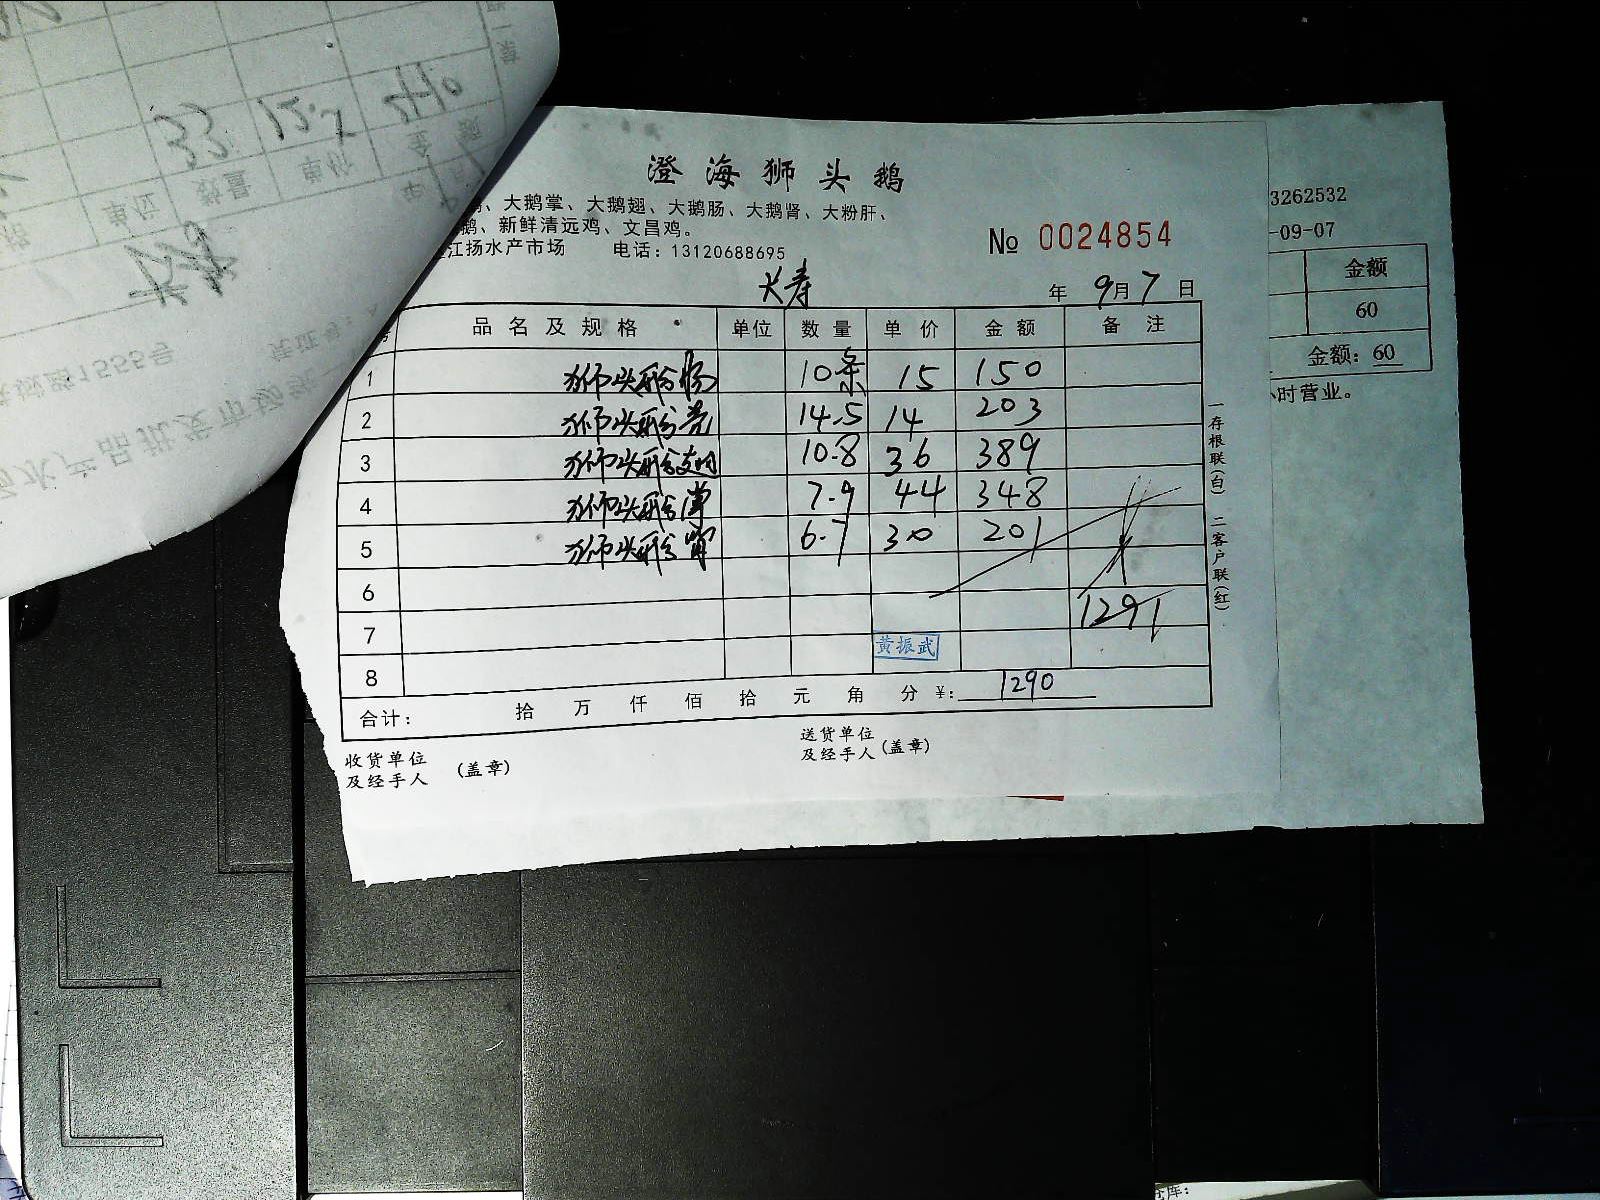 澄海狮头鹅
、大鹅掌、大鹅翅、大鹅肠、大鹅肾、大粉肝、
鹅、新鲜清远鸡、文昌鸡。
江扬水产市场 电话：13120688695
№ 0024854
大寿
年 9月 7 日
品名及规格 单位 数量 单价 金额 备注
1 狮头鹅肠 10条 15 150
2 狮头鹅壳 14.5 14 203
3 狮头鹅翅 10.8 36 389
4 狮头鹅掌 7.9 44 348
5 狮头鹅肾 6.7 30 201
6
1291
7
黄振武
8
合计： 拾 万 仟 佰 拾 元 角 分 ¥: 1290
收货单位
及经手人 (盖章)
送货单位
及经手人 (盖章)
一存根联(白) 二客户联(红)
3262532
-09-07
金额
60
金额: 60
小时营业。
33 12.5 410
单位 数量 单价 金额
大寿
1555号
水产品批发市场
仓库: